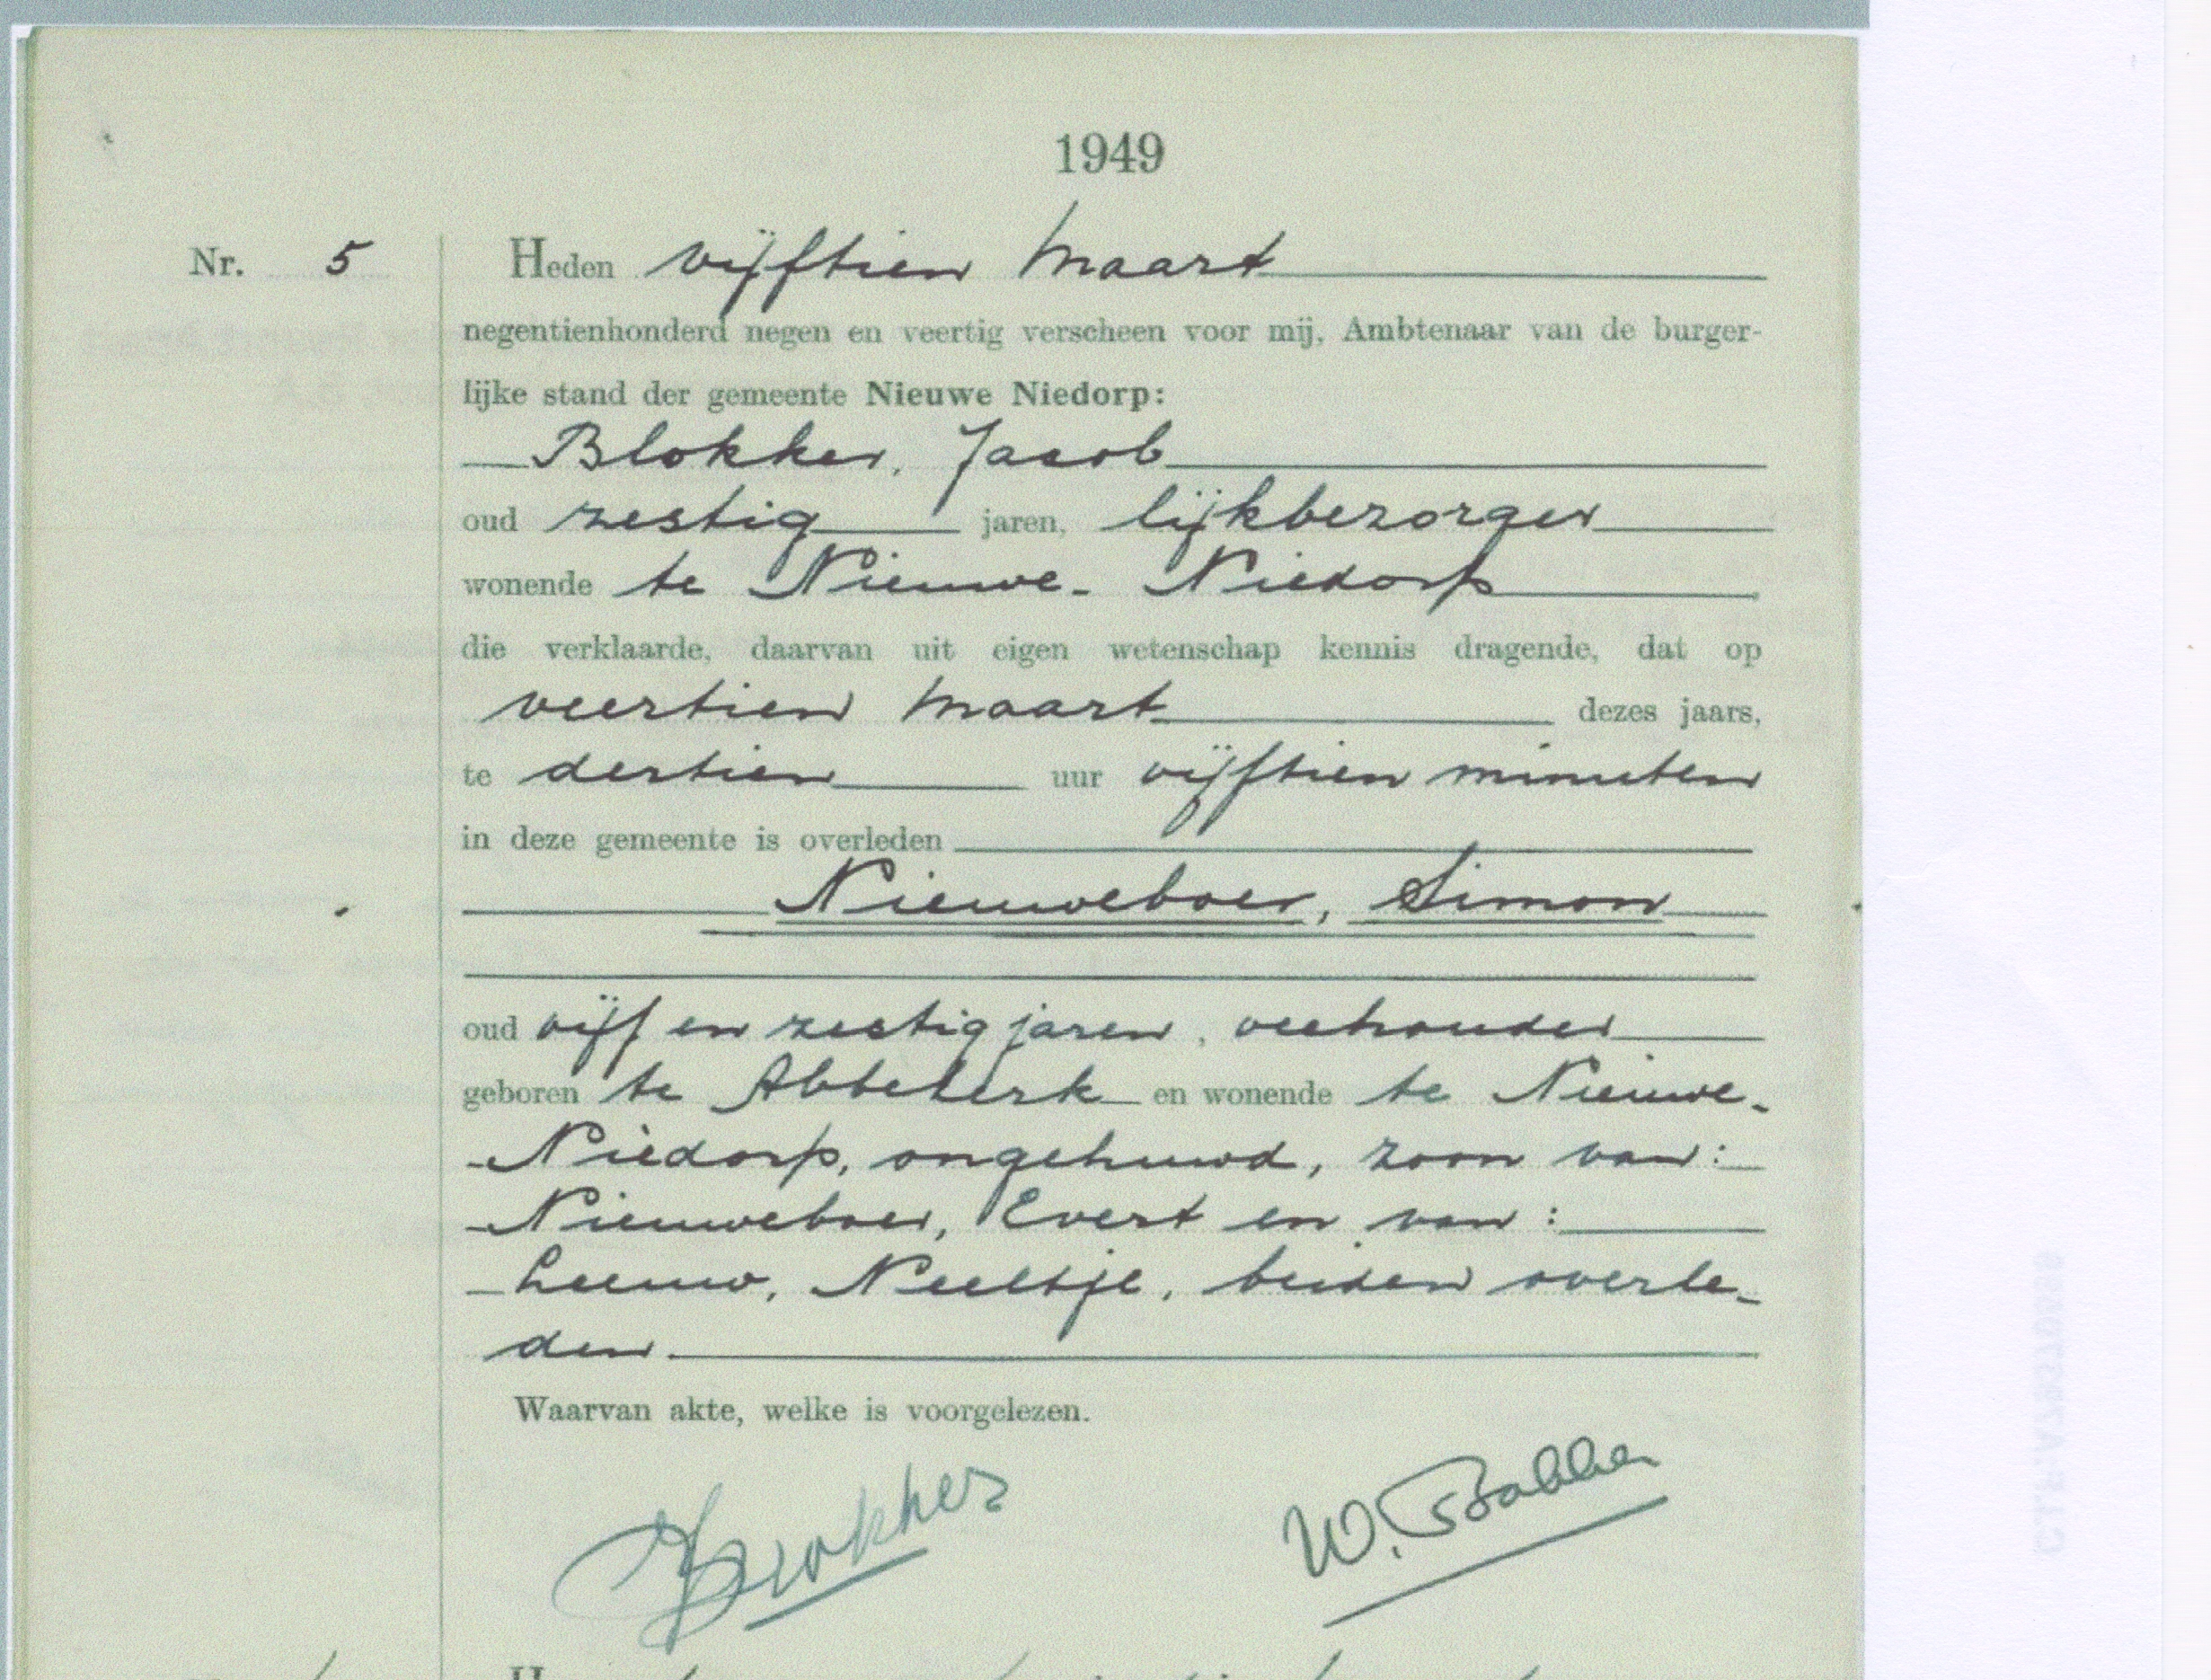 1949
Nr. 5
Heden vijftien Maart
negentienhonderd negen en veertig verscheen voor mij, Ambtenaar van de burger-
lijke stand der gemeente Nieuwe Niedorp:
Blokker, Jacob
oud zestig jaren, lijkbezorger
wonende te Nieuwe-Niedorp
die verklaarde, daarvan uit eigen wetenschap kennis dragende, dat op
veertien Maart dezes jaars,
te dertien uur vijftien minuten
in deze gemeente is overleden
Nieuweboer, Simon
oud vijf en zestig jaren, veehouder
geboren te Abbekerk en wonende te Nieuwe-
-Niedorp, ongehuwd, zoon van:
Nieuweboer, Evert en van:
Leeuw, Neeltje, beiden overle-
den.
Waarvan akte, welke is voorgelezen.
JBlokker
W. Bakker